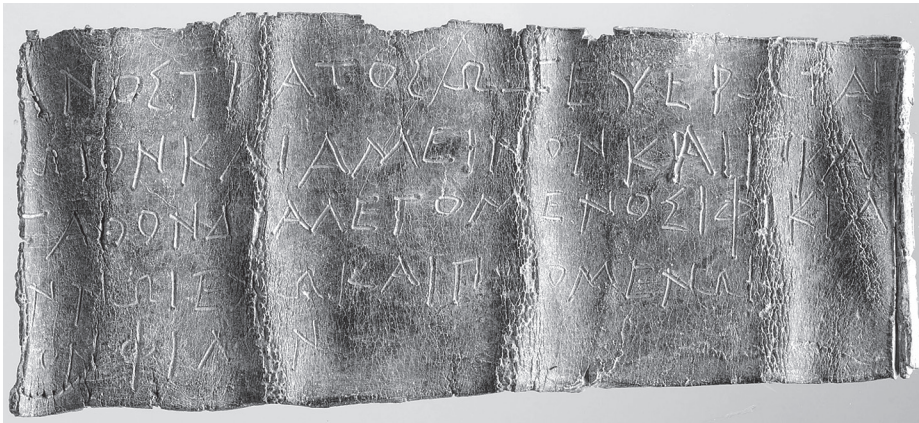 ΝΟΣΤΡΑΤΟΣΩΖΕΥΕΡΩΤΑΙ
ΩΙΟΝΚΑΙΑΜΕΙΝΟΝΚΑΙΠΡΑ
ΑΘΟΝΔΙΑΛΕΓΟΜΕΝΟΣΙΦΙΚΙΔ
ΝΤΩΙΕΥ ΩΚΑΙΠ ΟΜΕΝΩΙ
ΩΝΦΙΛ Ν